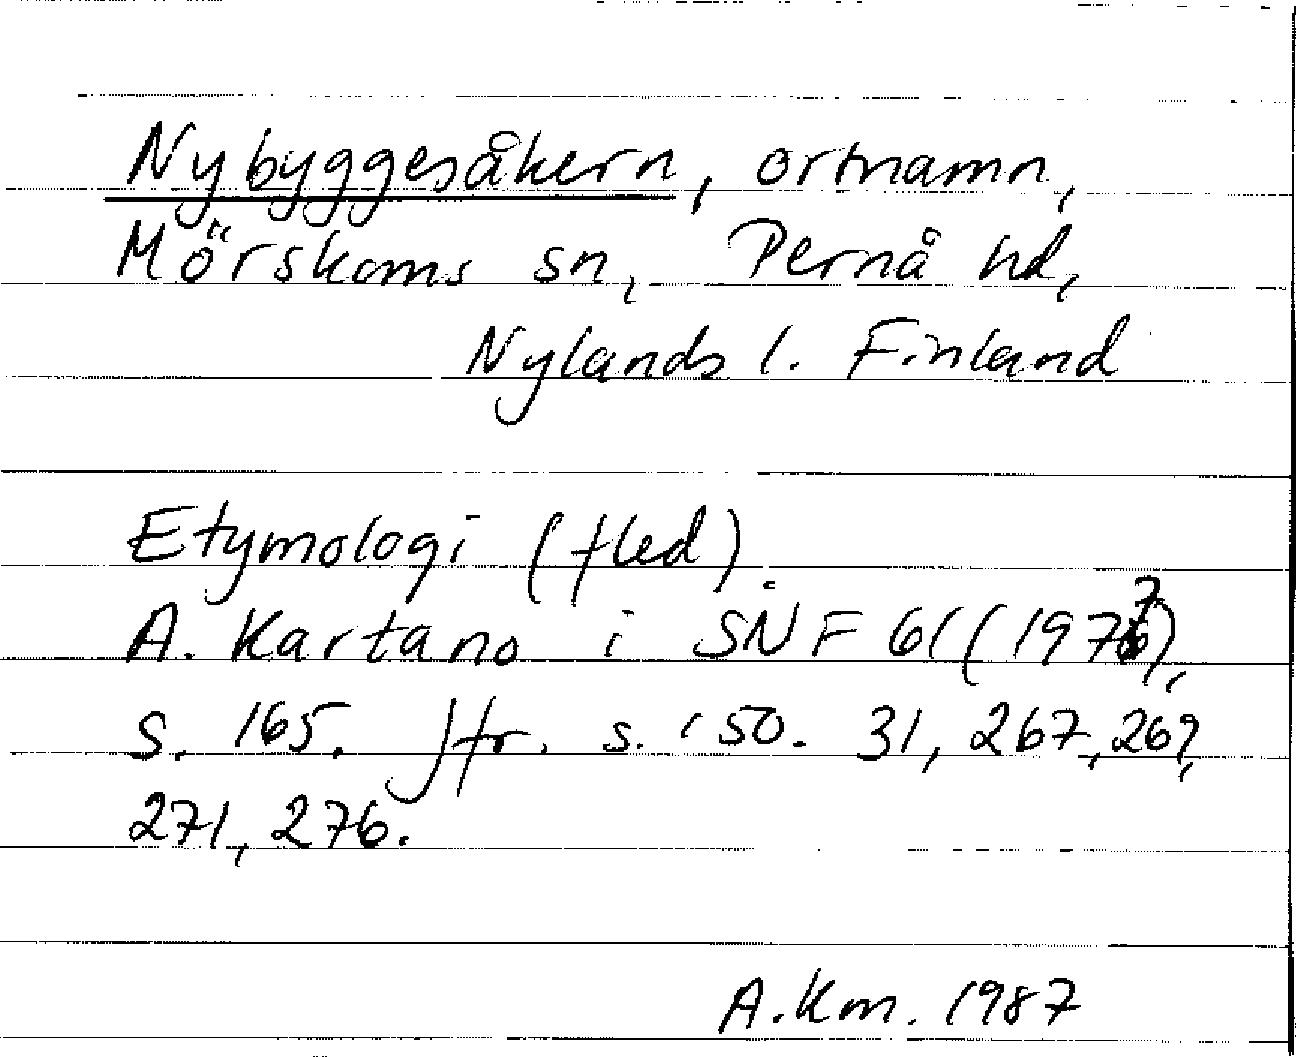 Nybyggesåkern, ortnamn,
Mörskoms sn, Pernå hd,
Nylands l. Finland
Etymologi (fled).
A. Kartano i SNF 61 (1977),
s. 165. Jfr. s. 150. 31, 267, 269,
271, 276.
A.Km. 1987